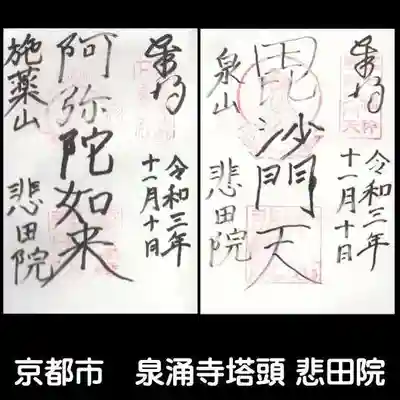 奉拝
令和三年
十一月十日
阿弥陀如来
施薬山
悲田院
奉拝
令和三年
十一月十日
毘沙門天
泉山
悲田院
京都市 泉涌寺塔頭 悲田院